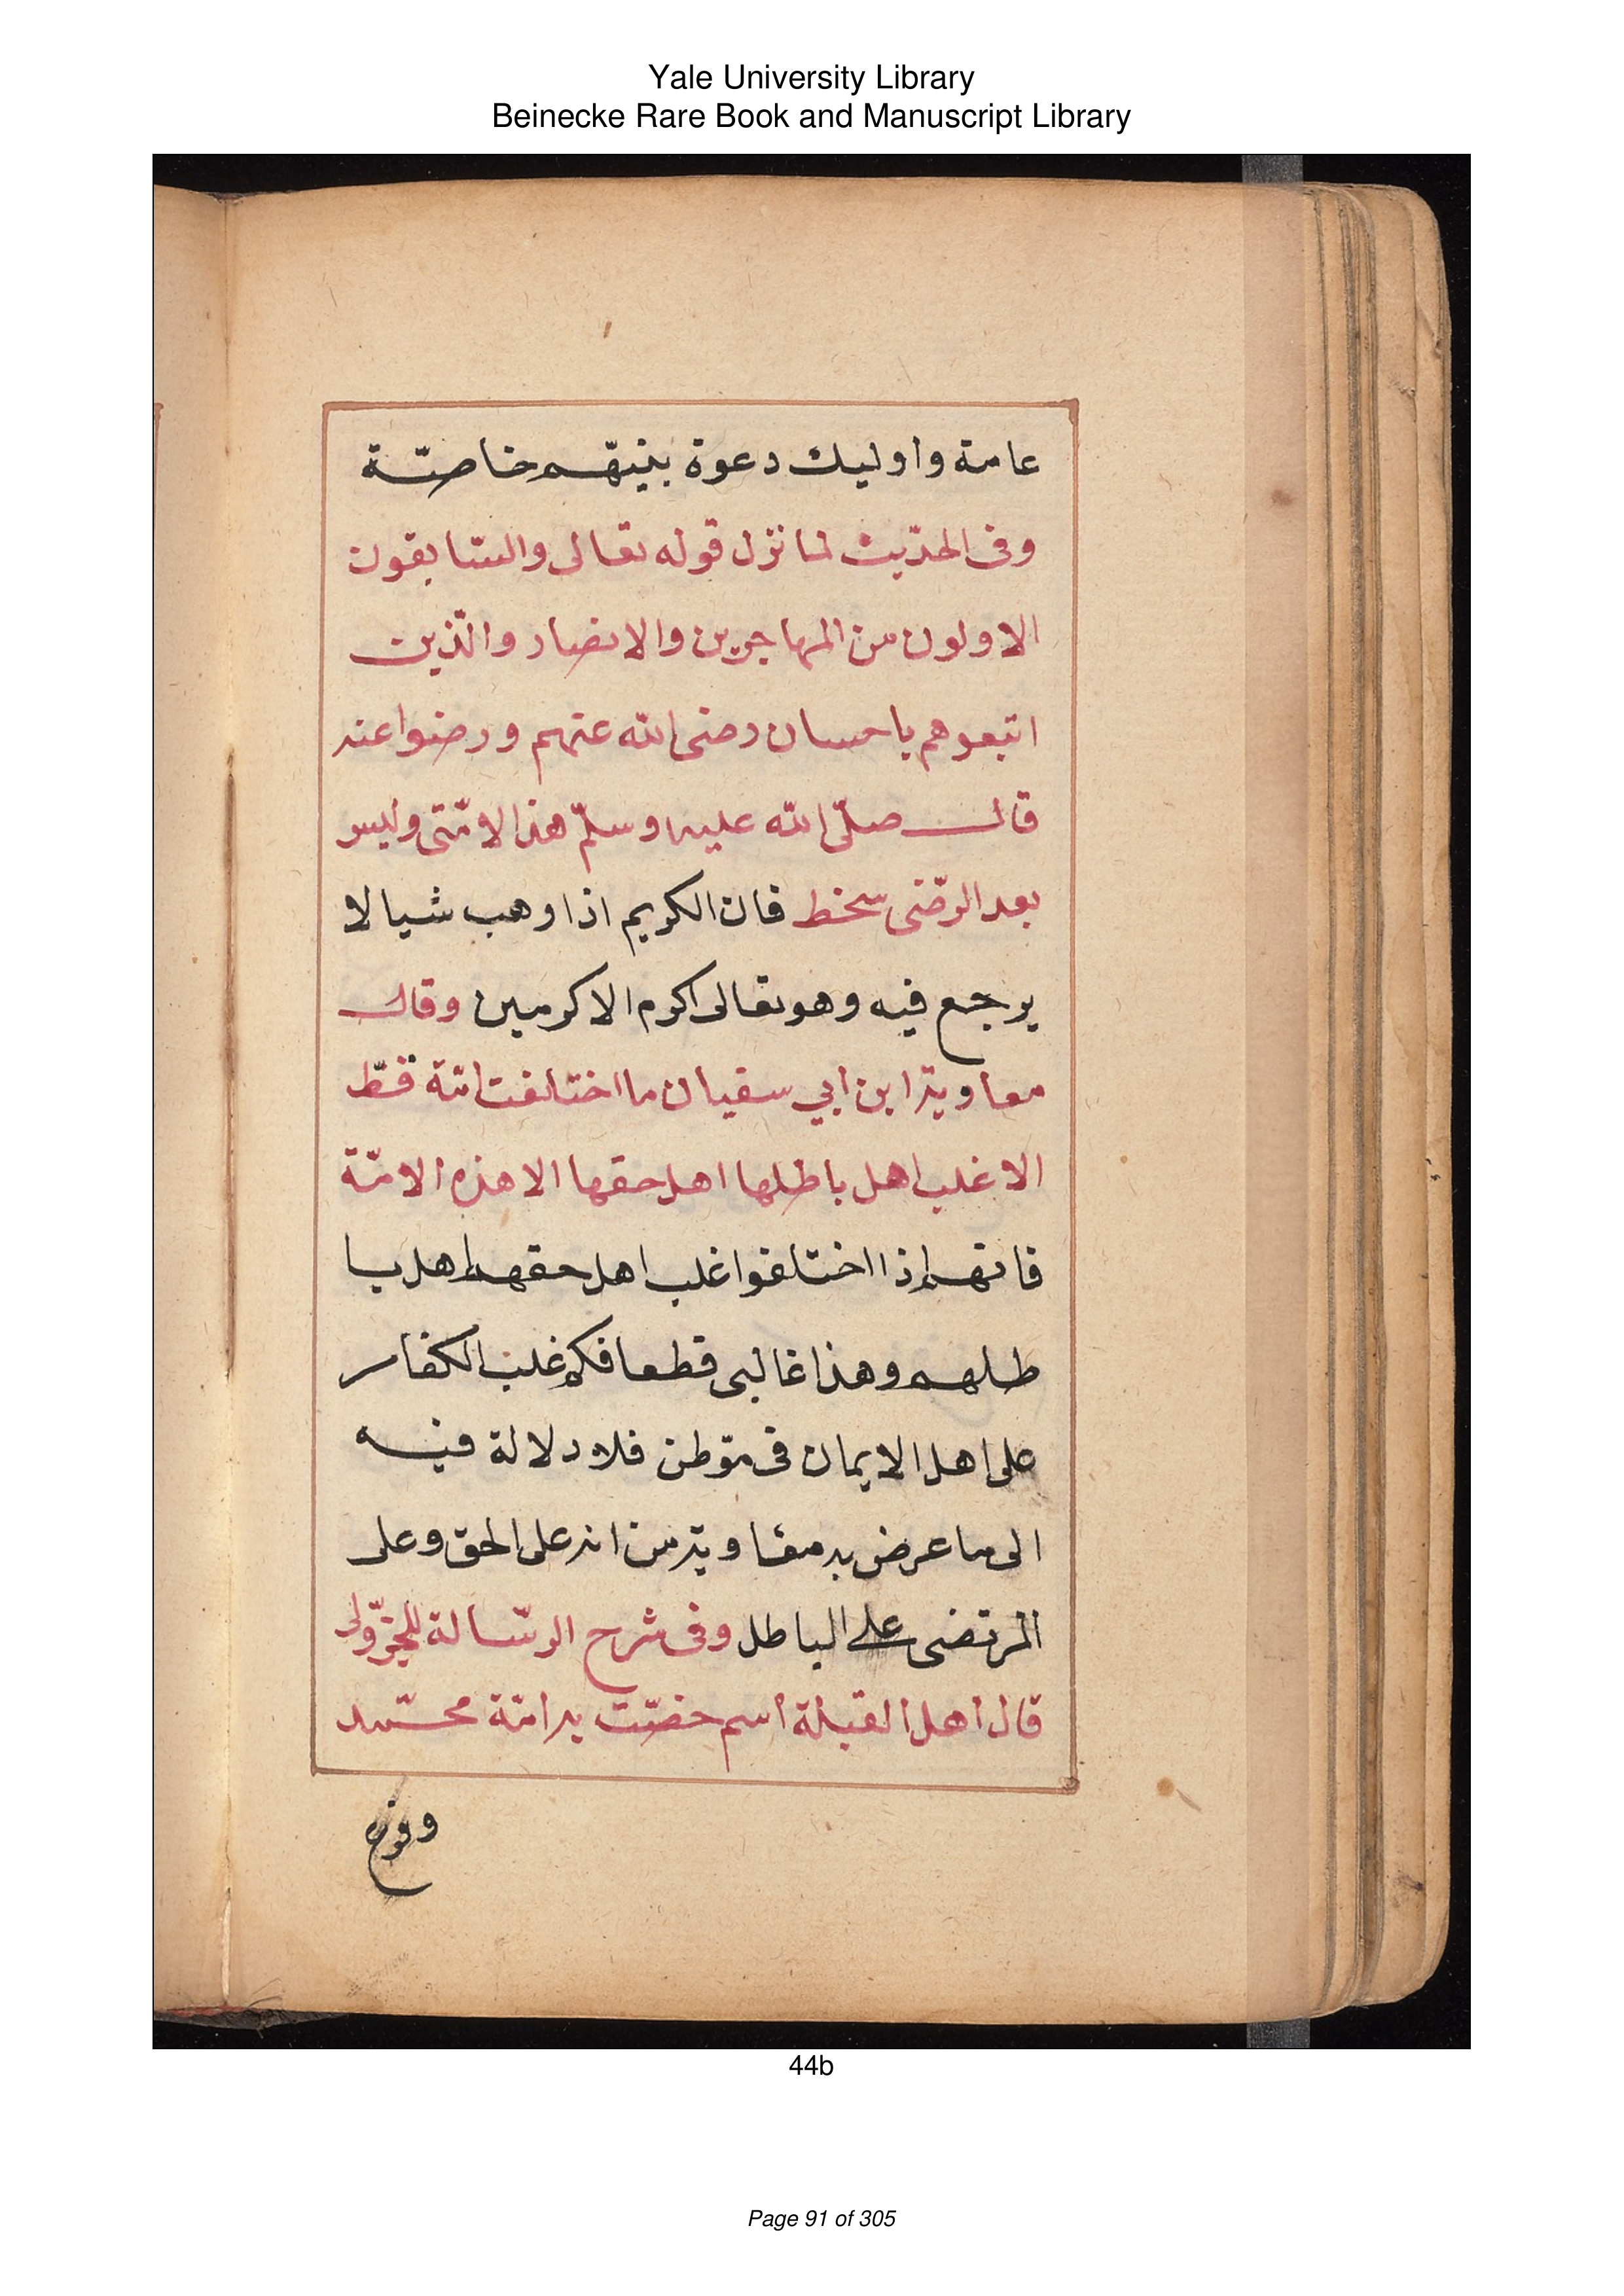 Yale University Library
Beinecke Rare Book and Manuscript Library
عامة واوليك دعوة بنيتهم خاصّة
وفى الحدّيث لما نزل قوله تعالى والسّابقون
الاولون من المهاجرين والانصار والّذين
اتبعوهم باحسان رضى الله عنهم ورضوا عنه
قال صلّى الله عليه وسلّم هذا لامّتى وليس
بعد الرّضى سخط فان الكريم اذا وهب شيا لا
يرجع فيه وهو تعالى اكرم الاكرمين وقال
معاوية ابن ابي سفيان ما اختلفت امّة قطّ
الا غلب اهل باطلها اهل حقها الا هذه الامّة
فانهم اذا اختلفوا غلب اهل حقهم اهل با
طلهم وهذا غالبى قطعا فكم غلب الكفار
على اهل الايمان فى موّطن فلا دلالة فيه
الى ما عرض به معاوية من انه على الحق وعلى
المرتضى على الباطل وفى شرح الرّسالة للجزّولى
قال اهل القبلة اسم خصّت به امّة محمّد
44b
Page 91 of 305